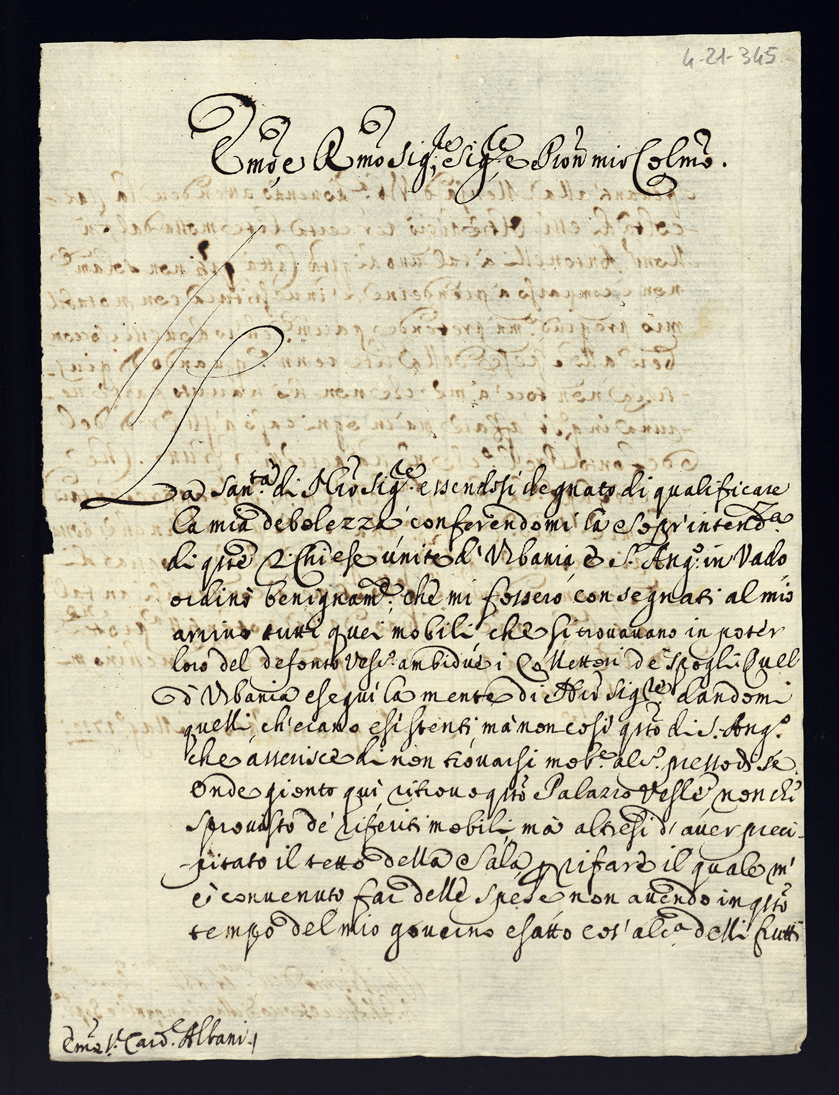 4-21-345
Emo, e Rmo Sig.re, e Sig.re e Pron mio Colmo.
La San.tà di Nro Sig.re essendosi degnato di qualificare
la mia debolezza conferendomi la Soprintend.za
di qste 2 Chiese unite d'Urbania e S. Ang.o in Vado
ordinò benignam.te che mi fossero consegnati al mio
arrivo tutti quei mobili che si trovavano in poter
loro del defonto Vesc.o ambidue i Collettori de' spogli Quell
d'Urbania eseguì la mente di Nro Sig.re dandomi
quelli ch'erano esistenti mà non così qsto di S. Ang.o
che asserisce di non trovarsi mob.e alc.o presso di se
Onde gionto quì ritrovo qsto Palazzo Vesle non chè
sprovisto de' riferiti mobili mà altresì d'aver preci-
-pitato il tetto della Sala p rifare il quale m'
è convenuto far delle Spese non avendo in qsto
tempo del mio governo esatto cos' alc.a delli frutti
Emo S.r Card.e Albani